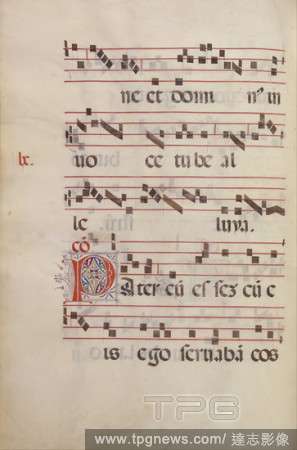 ne et domi n⁹ in
lx.
uo ce tube al
le luya.
cō
Pater cū essez cū e
is ego seruabā eos
TPG
www.tpgnews.com | 達志影像